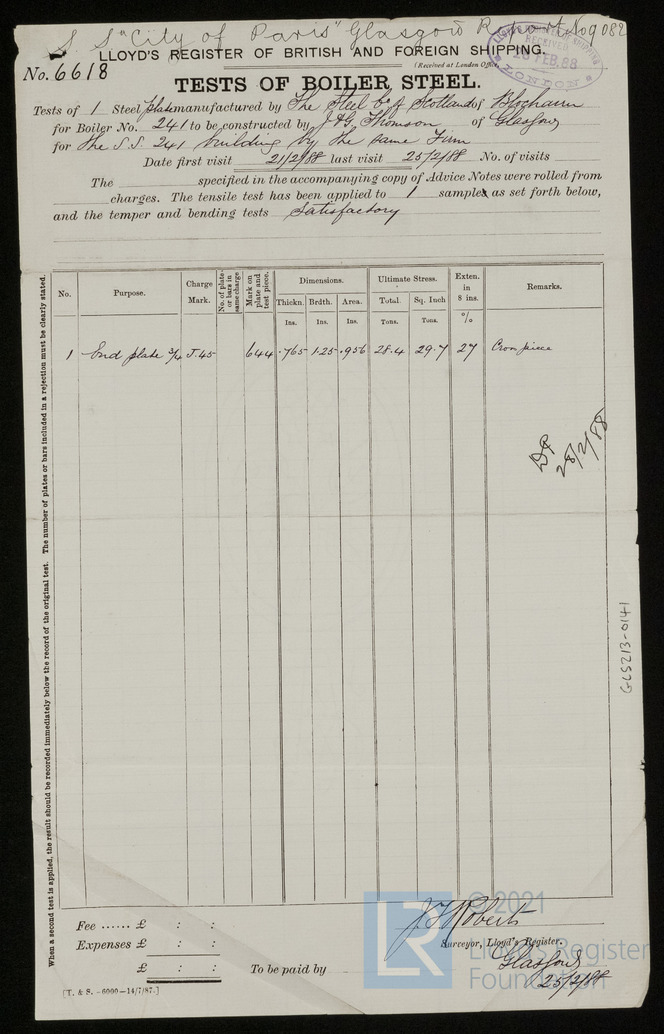 S. S "City of Paris" Glasgow Report No 9082
LLOYD'S REGISTER OF BRITISH AND FOREIGN SHIPPING.
LLOYD'S REGISTER OF SHIPPING RECEIVED FEB. 88 LONDON
(Received at London Office
No. 6618
TESTS OF BOILER STEEL.
Tests of 1 Steel plate manufactured by The Steel Co of Scotland of Blochairn
for Boiler No. 241 to be constructed by J & G. Thomson of Glasgow
for the S.S. 241 building by the same Firm
Date first visit 21/2/88 last visit 25/2/88 No. of visits
The specified in the accompanying copy of Advice Notes were rolled from
charges. The tensile test has been applied to 1 samples as set forth below,
and the temper and bending tests Satisfactory
No. Purpose. Charge Mark. No. of plates or bars in same charge Mark on plate and test piece. Dimensions. Ultimate Stress. Exten. in 8 ins. Remarks.
Thickn. Brdth. Area. Total. Sq. Inch
Ins. Ins. Ins. Tons. Tons. %
1 End plate 3/4 J.45 644 .765 1.25 .956 28.4 29.7 27 Crown piece
28/2/88
When a second test is applied, the result should be recorded immediately below the record of the original test. The number of plates or bars included in a rejection must be clearly stated.
GLS213-0141
Fee ...... £ : :
Expenses £ : :
£ : :
To be paid by
J F Roberts
Surveyor, Lloyd's Register.
Glasgow
25/2/88
[T. & S. -6000-14/7/87.]
© 2021
LR
Lloyd's Register
Foundation